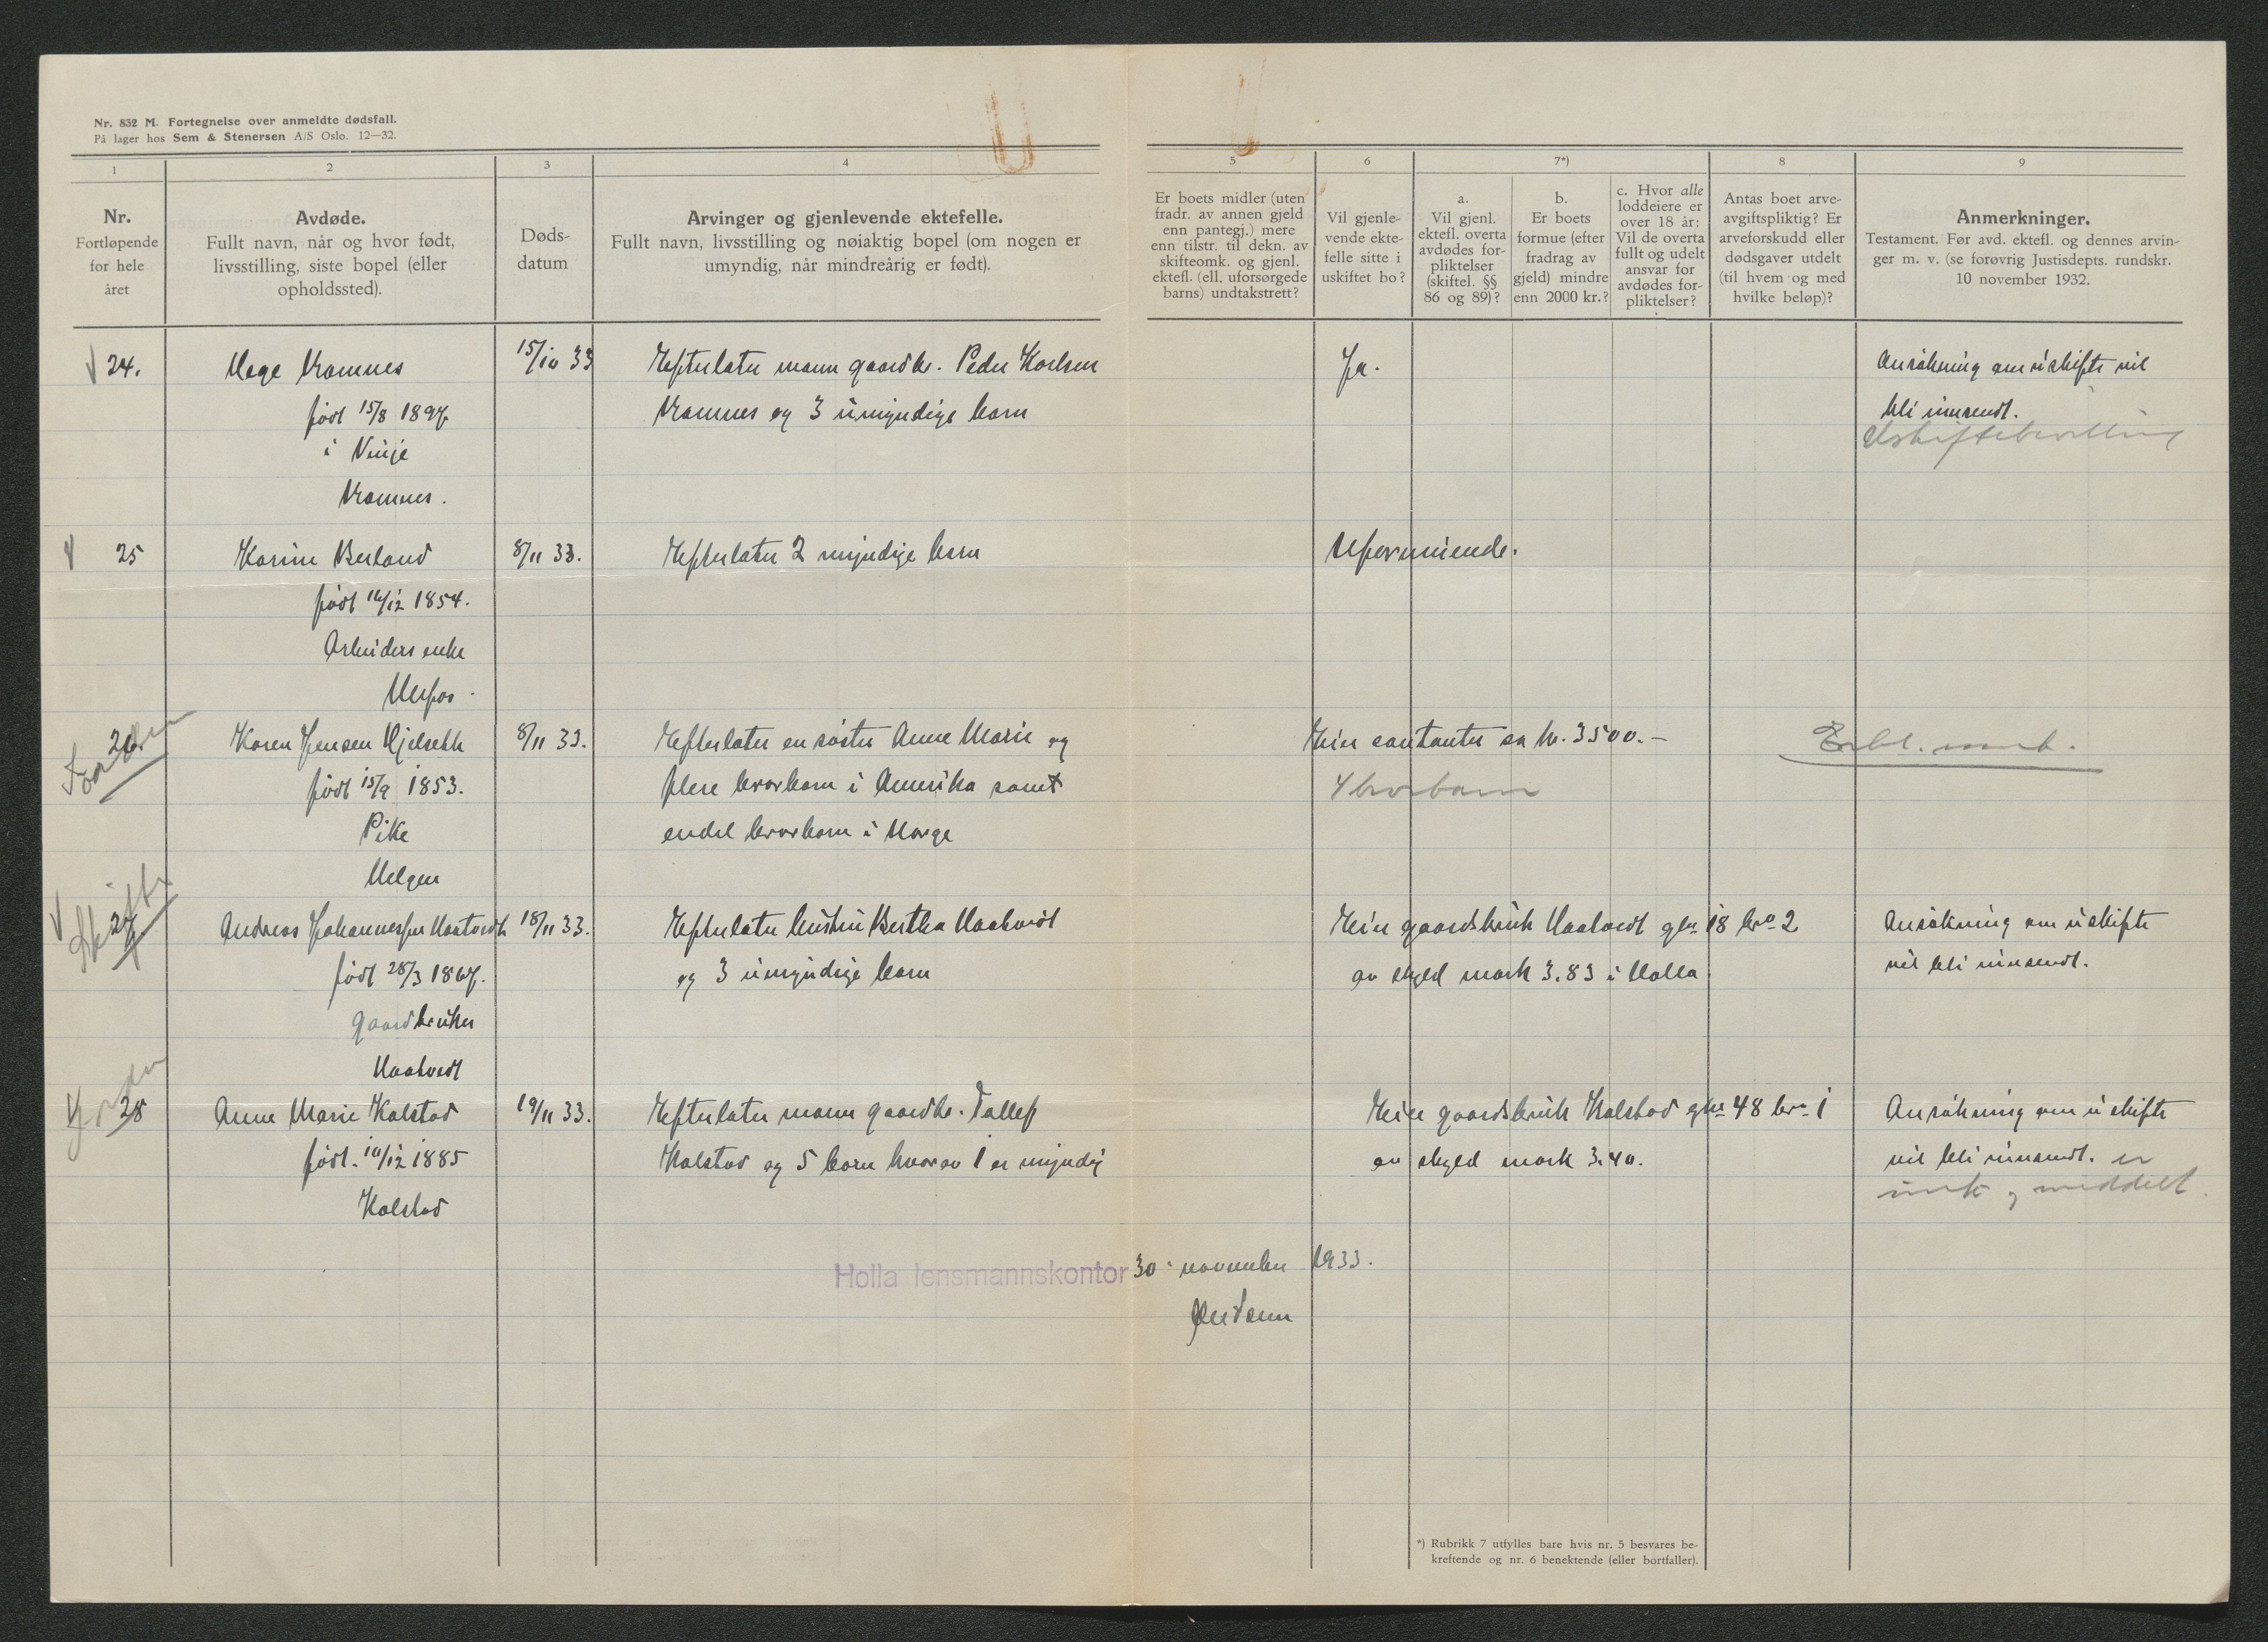 Nr. 832 M. Fortegnelse over anmeldte dødsfall.
På lager hos Sem & Stenersen A/S Oslo. 12—32.
1 2 3 4 5 6 7*) 8 9
Nr.
Fortløpende
for hele
året
Avdøde.
Fullt navn, når og hvor født,
livsstilling, siste bopel (eller
opholdssted).
Døds-
datum
Arvinger og gjenlevende ektefelle.
Fullt navn, livsstilling og nøiaktig bopel (om nogen er
umyndig, når mindreårig er født).
Er boets midler (uten
fradr. av annen gjeld
enn pantegj.) mere
enn tilstr. til dekn. av
skifteomk. og gjenl.
ektefl. (ell. uforsørgede
barns) undtakstrett?
Vil gjenle-
vende ekte-
felle sitte i
uskiftet bo?
a.
Vil gjenl.
ektefl. overta
avdødes for-
pliktelser
(skiftel. §§
86 og 89)?
b.
Er boets
formue (efter
fradrag av
gjeld) mindre
enn 2000 kr.?
c. Hvor alle
loddeiere er
over 18 år:
Vil de overta
fullt og udelt
ansvar for
avdødes for-
pliktelser?
Antas boet arve-
avgiftspliktig? Er
arveforskudd eller
dødsgaver utdelt
(til hvem og med
hvilke beløp)?
Anmerkninger.
Testament. Før avd. ektefl. og dennes arvin-
ger m. v. (se forøvrig Justisdepts. rundskr.
10 november 1932.
24. 15/10 33 Efterlater mann gaardbr. Peder Karlsen Ja. Ansökning om uskifte vil
født 15/8 1897 og 3 umyndige barn bli innsendt.
i Vinje Uskiftebevilling
25 Karine Berland 8/11 33. Efterlater 2 myndige barn Uformuende.
født 1854.
Arbeiders enke
Ulefos.
26 Karen Jensen 8/11 33. Efterlater en søster Anne Marie og Eier contanter ca kr. 3500.—
født 15/9 1853. flere brorbarn i Amerika samt 4 brorbarn
Pike endel brorbarn i Norge
Helgen
Skifte
27 Andreas Johannessen Haatvedt 18/11 33. Efterlater hustru Bertha Haatvedt Eier gaardsbruk Haatvedt gno 18 bno 2 Ansökning om uskifte
født 28/3 1867. og 3 umyndige barn av skyld mark 3.83 i Holla vil bli innsendt.
gaardbruker
Haatvedt
28 Anne Marie Kalstad 19/11 33. Efterlater mann gaardbr. Tallef Eier gaardsbruk Kalstad gno 48 bno 1 Ansökning om uskifte
født. 10/12 1885 Kalstad og 5 barn hvorav 1 er myndig av skyld mark 3.40. vil bli innsendt. er
Kalstad meddelt
Holla lensmannskontor 30 november 1933.
*) Rubrikk 7 utfylles bare hvis nr. 5 besvares be-
kreftende og nr. 6 benektende (eller bortfaller).